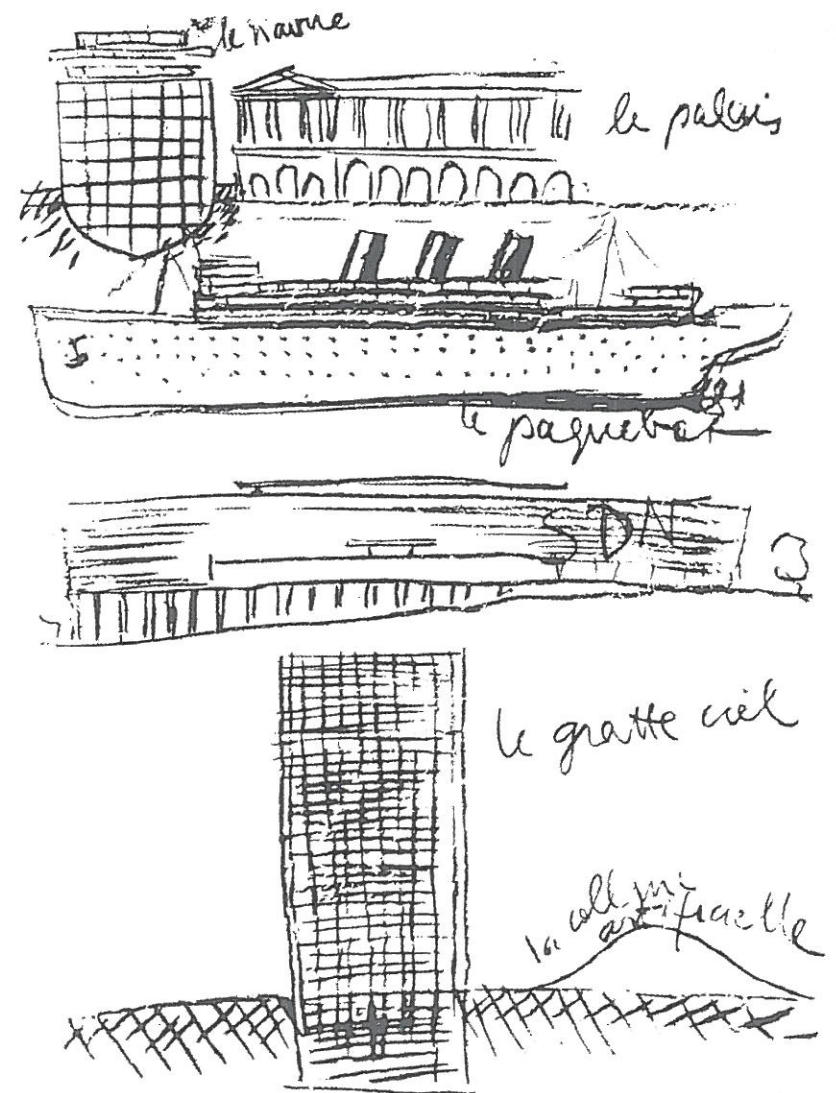 le navire
le palais
le paquebot
SDN
le gratte ciel
la colline
artificielle